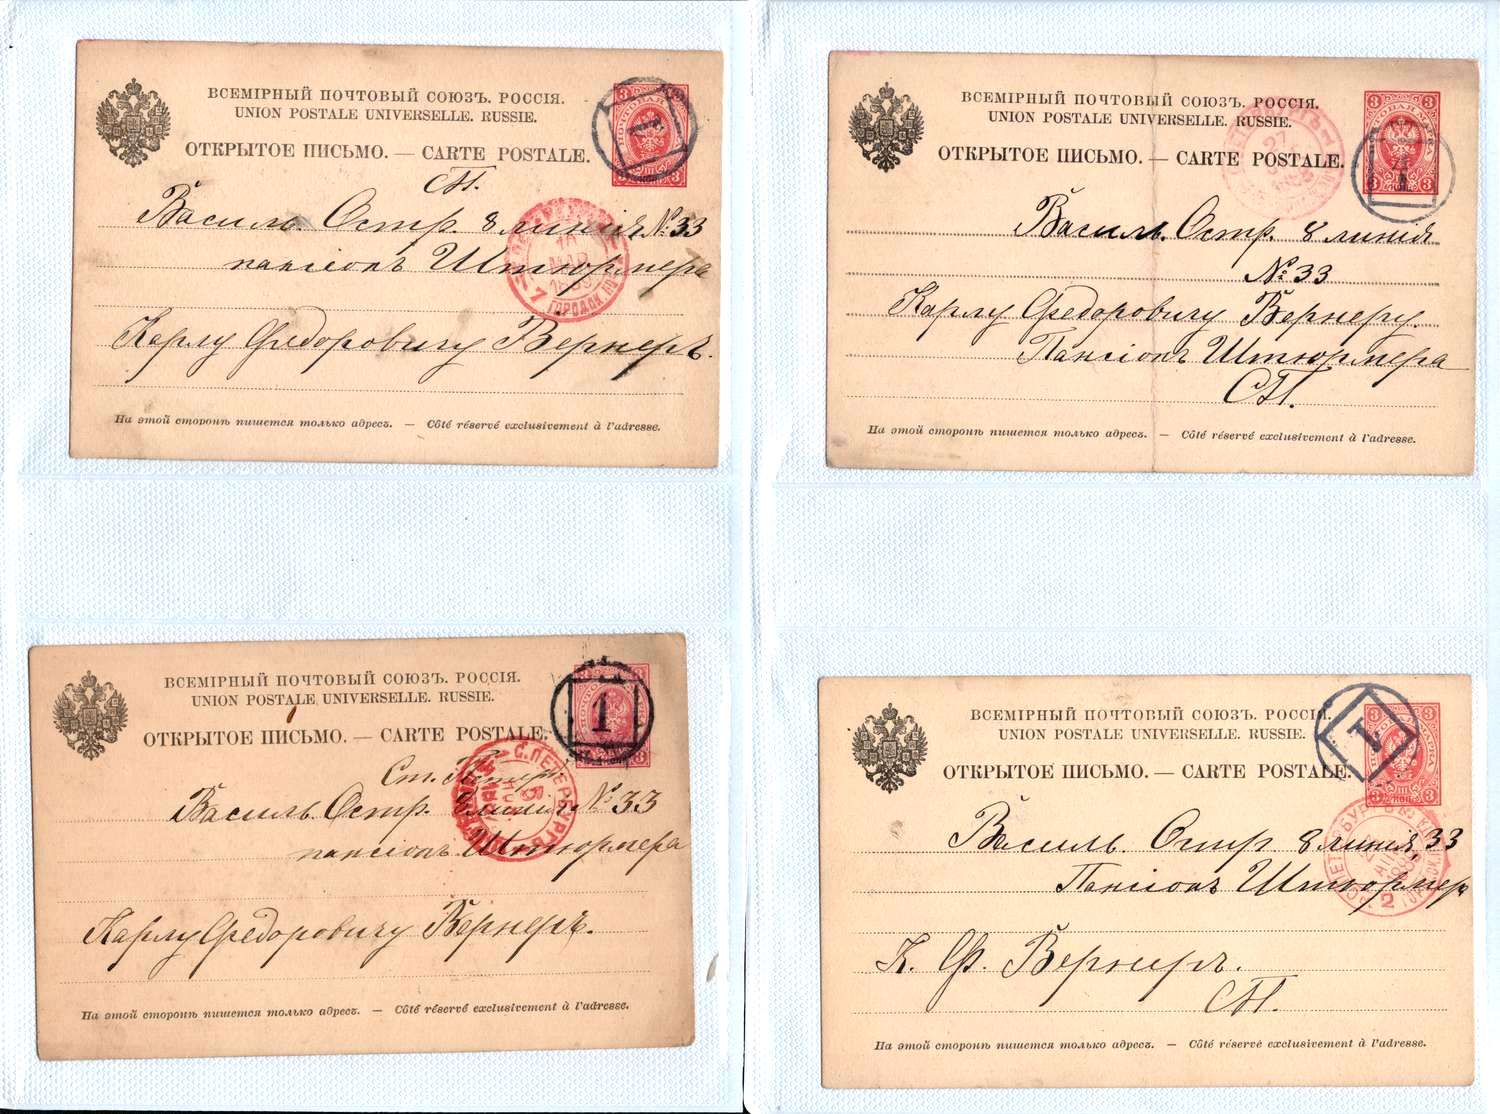 ВСЕМІРНЫЙ ПОЧТОВЫЙ СОЮЗЪ. РОССІЯ.
UNION POSTALE UNIVERSELLE. RUSSIE.
ОТКРЫТОЕ ПИСЬМО. — CARTE POSTALE.
СП.
Василь. Остр. 8 линія № 33
пансіонъ Штюрмера
Карлу Федоровичу Вернеръ.
На этой сторонѣ пишется только адресъ. — Côté réservé exclusivement à l'adresse.
3 3
3 3
1
МАР
7
ВСЕМІРНЫЙ ПОЧТОВЫЙ СОЮЗЪ. РОССІЯ.
UNION POSTALE UNIVERSELLE. RUSSIE.
ОТКРЫТОЕ ПИСЬМО. — CARTE POSTALE.
Василь. Остр. 8 линія
№ 33
Карлу Федоровичу Вернеру.
Пансіонъ Штюрмера
СП.
На этой сторонѣ пишется только адресъ. — Côté réservé exclusivement à l'adresse.
3 3
ПОЧТОВАЯ МАРКА
3 3
1
27
ВСЕМІРНЫЙ ПОЧТОВЫЙ СОЮЗЪ. РОССІЯ.
UNION POSTALE UNIVERSELLE. RUSSIE.
ОТКРЫТОЕ ПИСЬМО. — CARTE POSTALE.
Ст. Петерб
Василь. Остр. 8 линія № 33
пансіонъ Штюрмера
Карлу Федоровичу Вернеръ.
На этой сторонѣ пишется только адресъ. — Côté réservé exclusivement à l'adresse.
1
С. ПЕТЕРБУРГЪ
ВСЕМІРНЫЙ ПОЧТОВЫЙ СОЮЗЪ. РОССІЯ.
UNION POSTALE UNIVERSELLE. RUSSIE.
ОТКРЫТОЕ ПИСЬМО. — CARTE POSTALE.
Василь. Остр 8 линія, 33
Пансіонъ Штюрмер
К. Ф. Вернеръ.
СП.
На этой сторонѣ пишется только адресъ. — Côté réservé exclusivement à l'adresse.
3 3
3 КОП. 3
1
2